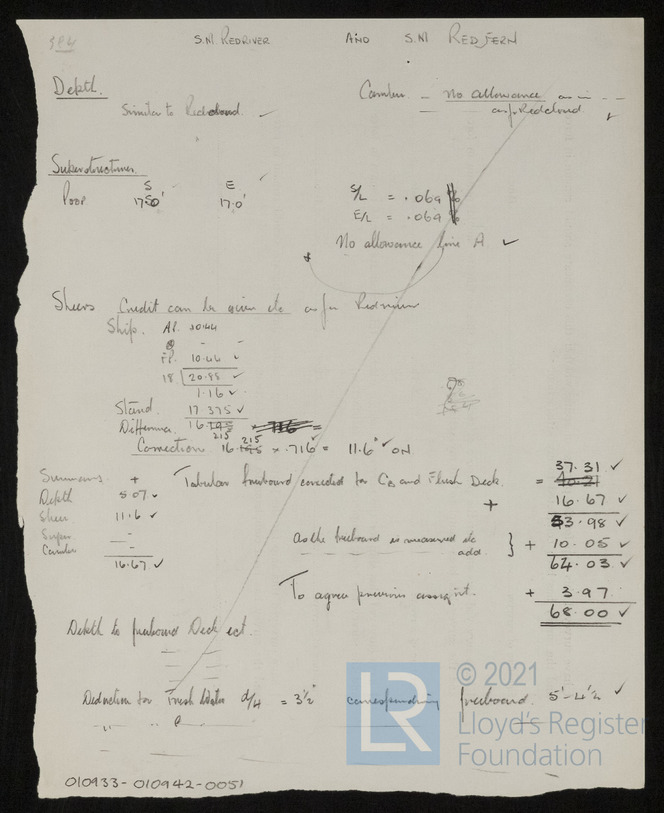 S.M REDRIVER AND S.M REDFERN
Depth. Camber - No allowance
Similar to Redcloud. as for Redcloud
Superstructures
S E S/L = .069
Poop 17.50' 17.0' E/L = .069
No allowance line A
Sheers Credit can be given etc as for Redriver
Ship. AP. 10.44
FP. 10.44
18 20.88
1.16
Stand. 17.375
Difference 16.195 × .716 =
215 215
Correction 16.195 × .716 = 11.6" ON
37.31
Summary + Tabular freeboard corrected for CB and Flush Deck. = 40.21
Depth 5.07 + 16.67
Sheer 11.6 53.98
Super. - As the freeboard is measured etc } + 10.05
Camber - add.
16.67 64.03
To agree previous assignt. + 3.97
68.00
Depth to freeboard Deck ect.
Deduction for Fresh Water d/4 = 3½" corresponding freeboard. 5'-4½
010933-010942-0051
© 2021
LR Lloyd's Register
Foundation